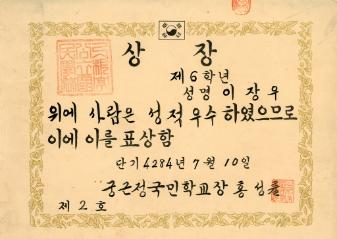 상장
제6학년
성명 이장우
위에 사람은 성적 우수 하였으므로
이에 이를 표상함
단기 4284년 7월 10일
궁근정국민학교장 홍성
제 2 호